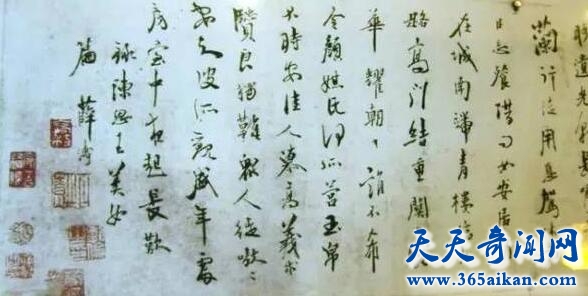 蘭行徒用息駕
以忘餐借問女安居
在城南端青樓
路高門結重關
華耀朝日誰不希
令顏媒氏何所營玉帛
不時安佳人慕高義求
賢良獨難眾人徒嗷〻
安知彼所觀盛年處
房室中夜起長歎
錄陳思王美女
篇 薛濤
天天奇闻网
www.365aikan.com